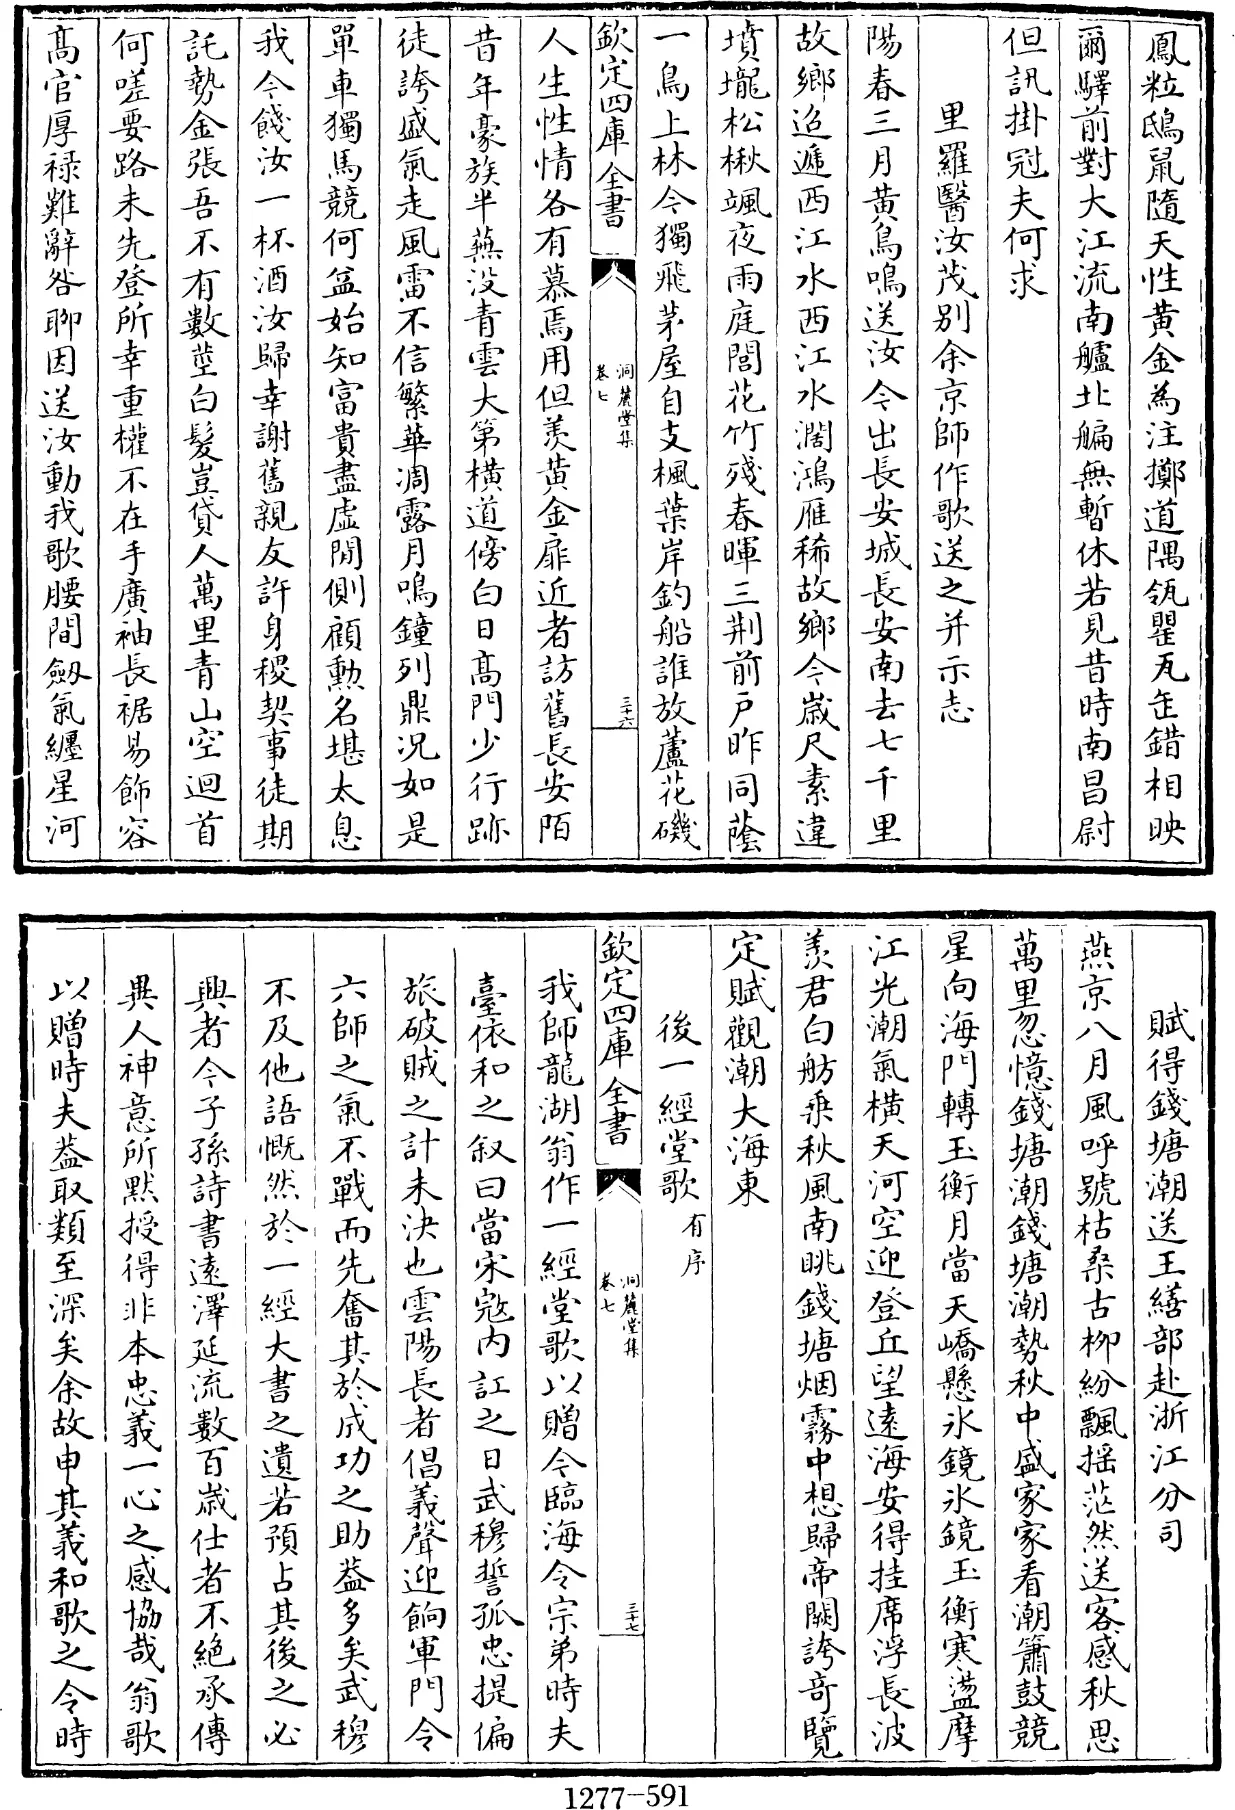 鳳粒鴟鼠隨天性黃金為注擲道隅瓴罌瓦缶錯相映
爾驛前對大江流南艫北艑無暫休若見昔時南昌尉
但訊掛冠夫何求
里羅醫汝茂別余京師作歌送之并示志
陽春三月黃鳥鳴送汝今出長安城長安南去七千里
故鄉迢遞西江水西江水濶鴻雁稀故鄉今嵗尺素違
墳壠松楸颯夜雨庭閭花竹殘春暉三荆前戶昨同蔭
一鳥上林今獨飛茅屋自支楓葉岸釣船誰放蘆花磯
欽定四庫全書
洞麓堂集
卷七
三十六
人生性情各有慕焉用但羨黃金扉近者訪舊長安陌
昔年豪族半蕪没青雲大第橫道傍白日髙門少行跡
徒誇盛氣走風雷不信繁華凋露月鳴鐘列鼎況如是
單車獨馬競何益始知富貴盡虛閒側顧勲名堪太息
我今餞汝一杯酒汝歸幸謝舊親友許身稷契事徒期
託勢金張吾不有數莖白髮豈貸人萬里青山空迴首
何嗟要路未先登所幸重權不在手廣袖長裾易飾容
髙官厚禄難辭咎聊因送汝動我歌腰間劔氣纒星河
賦得錢塘潮送王繕部赴浙江分司
燕京八月風呼號枯桑古柳紛飄揺茫然送客感秋思
萬里忽憶錢塘潮錢塘潮勢秋中盛家家看潮簫鼓競
星向海門轉玉衡月當天嶠懸氷鏡氷鏡玉衡寒盪摩
江光潮氣橫天河空迎登丘望遠海安得挂席浮長波
羨君白舫乗秋風南眺錢塘烟霧中想歸帝闕誇竒覽
定賦觀潮大海東
後一經堂歌有序
欽定四庫全書
洞麓堂集
卷七
三十七
我師龍湖翁作一經堂歌以贈今臨海令宗弟時夫
臺依和之叙曰當宋寇内訌之日武穆誓孤忠提偏
旅破賊之計未決也雲陽長者倡義聲迎餉軍門令
六師之氣不戰而先奮其於成功之助葢多矣武穆
不及他語慨然於一經大書之遺若預占其後之必
興者今子孫詩書遠澤延流數百嵗仕者不絶承傳
異人神意所黙授得非本忠義一心之感協哉翁歌
以贈時夫葢取類至深矣余故申其義和歌之令時
1277-591